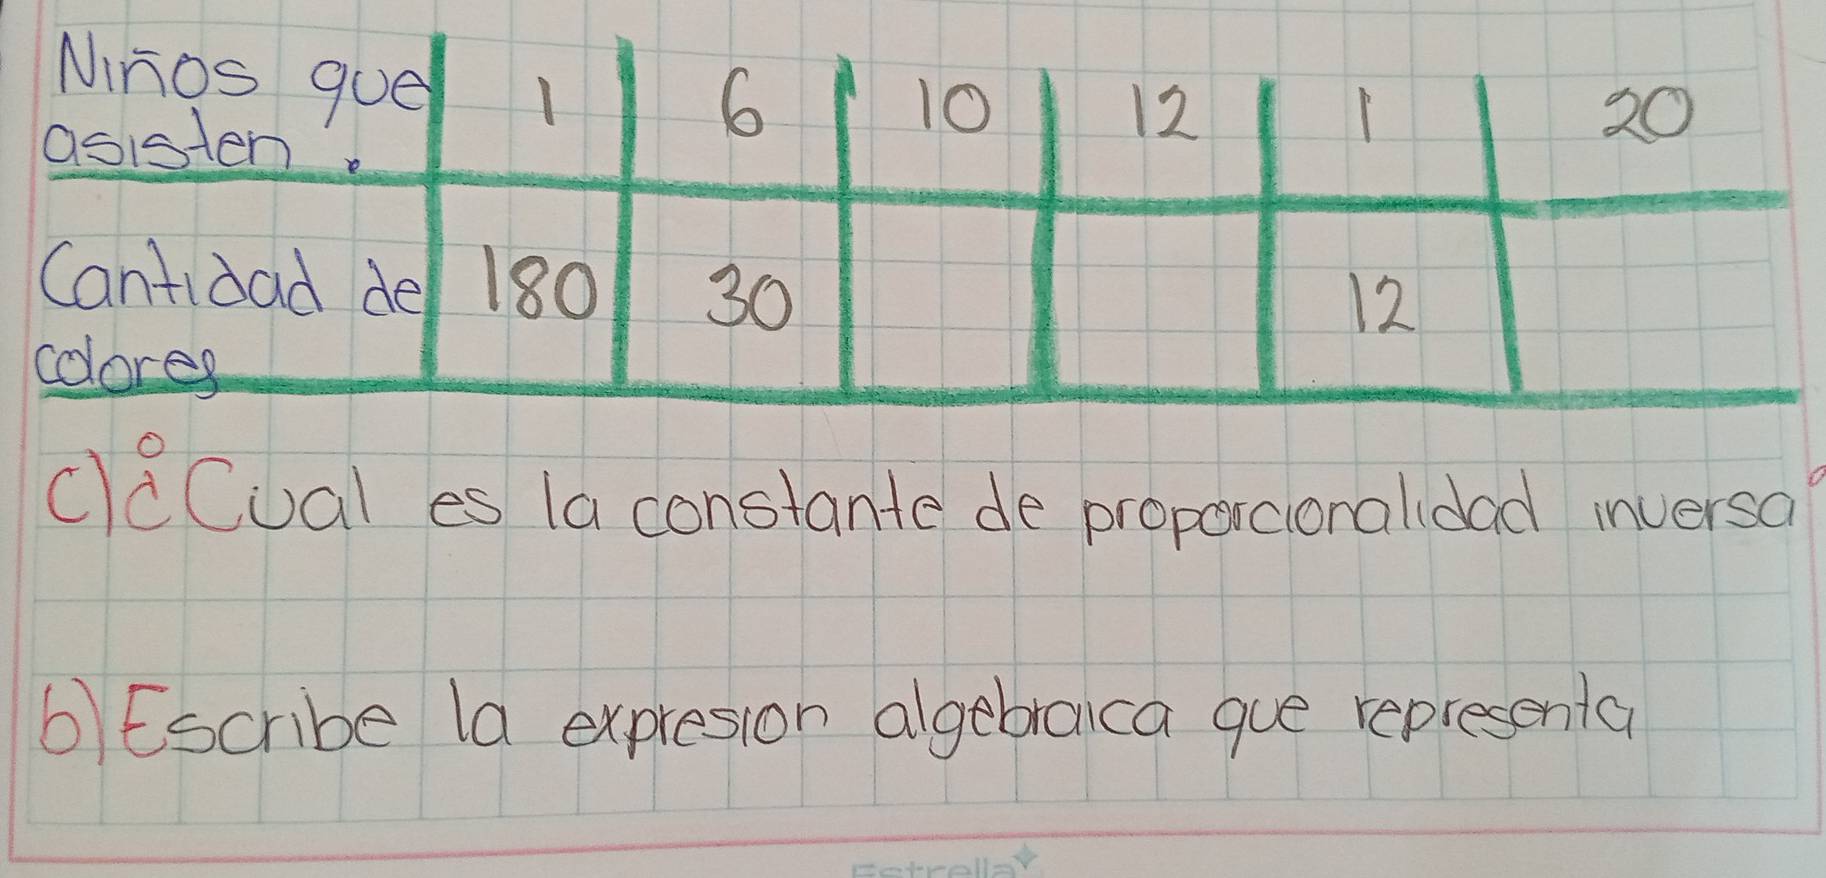 Niños que 1 6 10 12 1 20
asisten.
Cantidad de 180 30 12
colores
c)¿Cual es la constante de proporcionalidad inversa?
b)Escribe la expresion algebraica que representa
Estrella